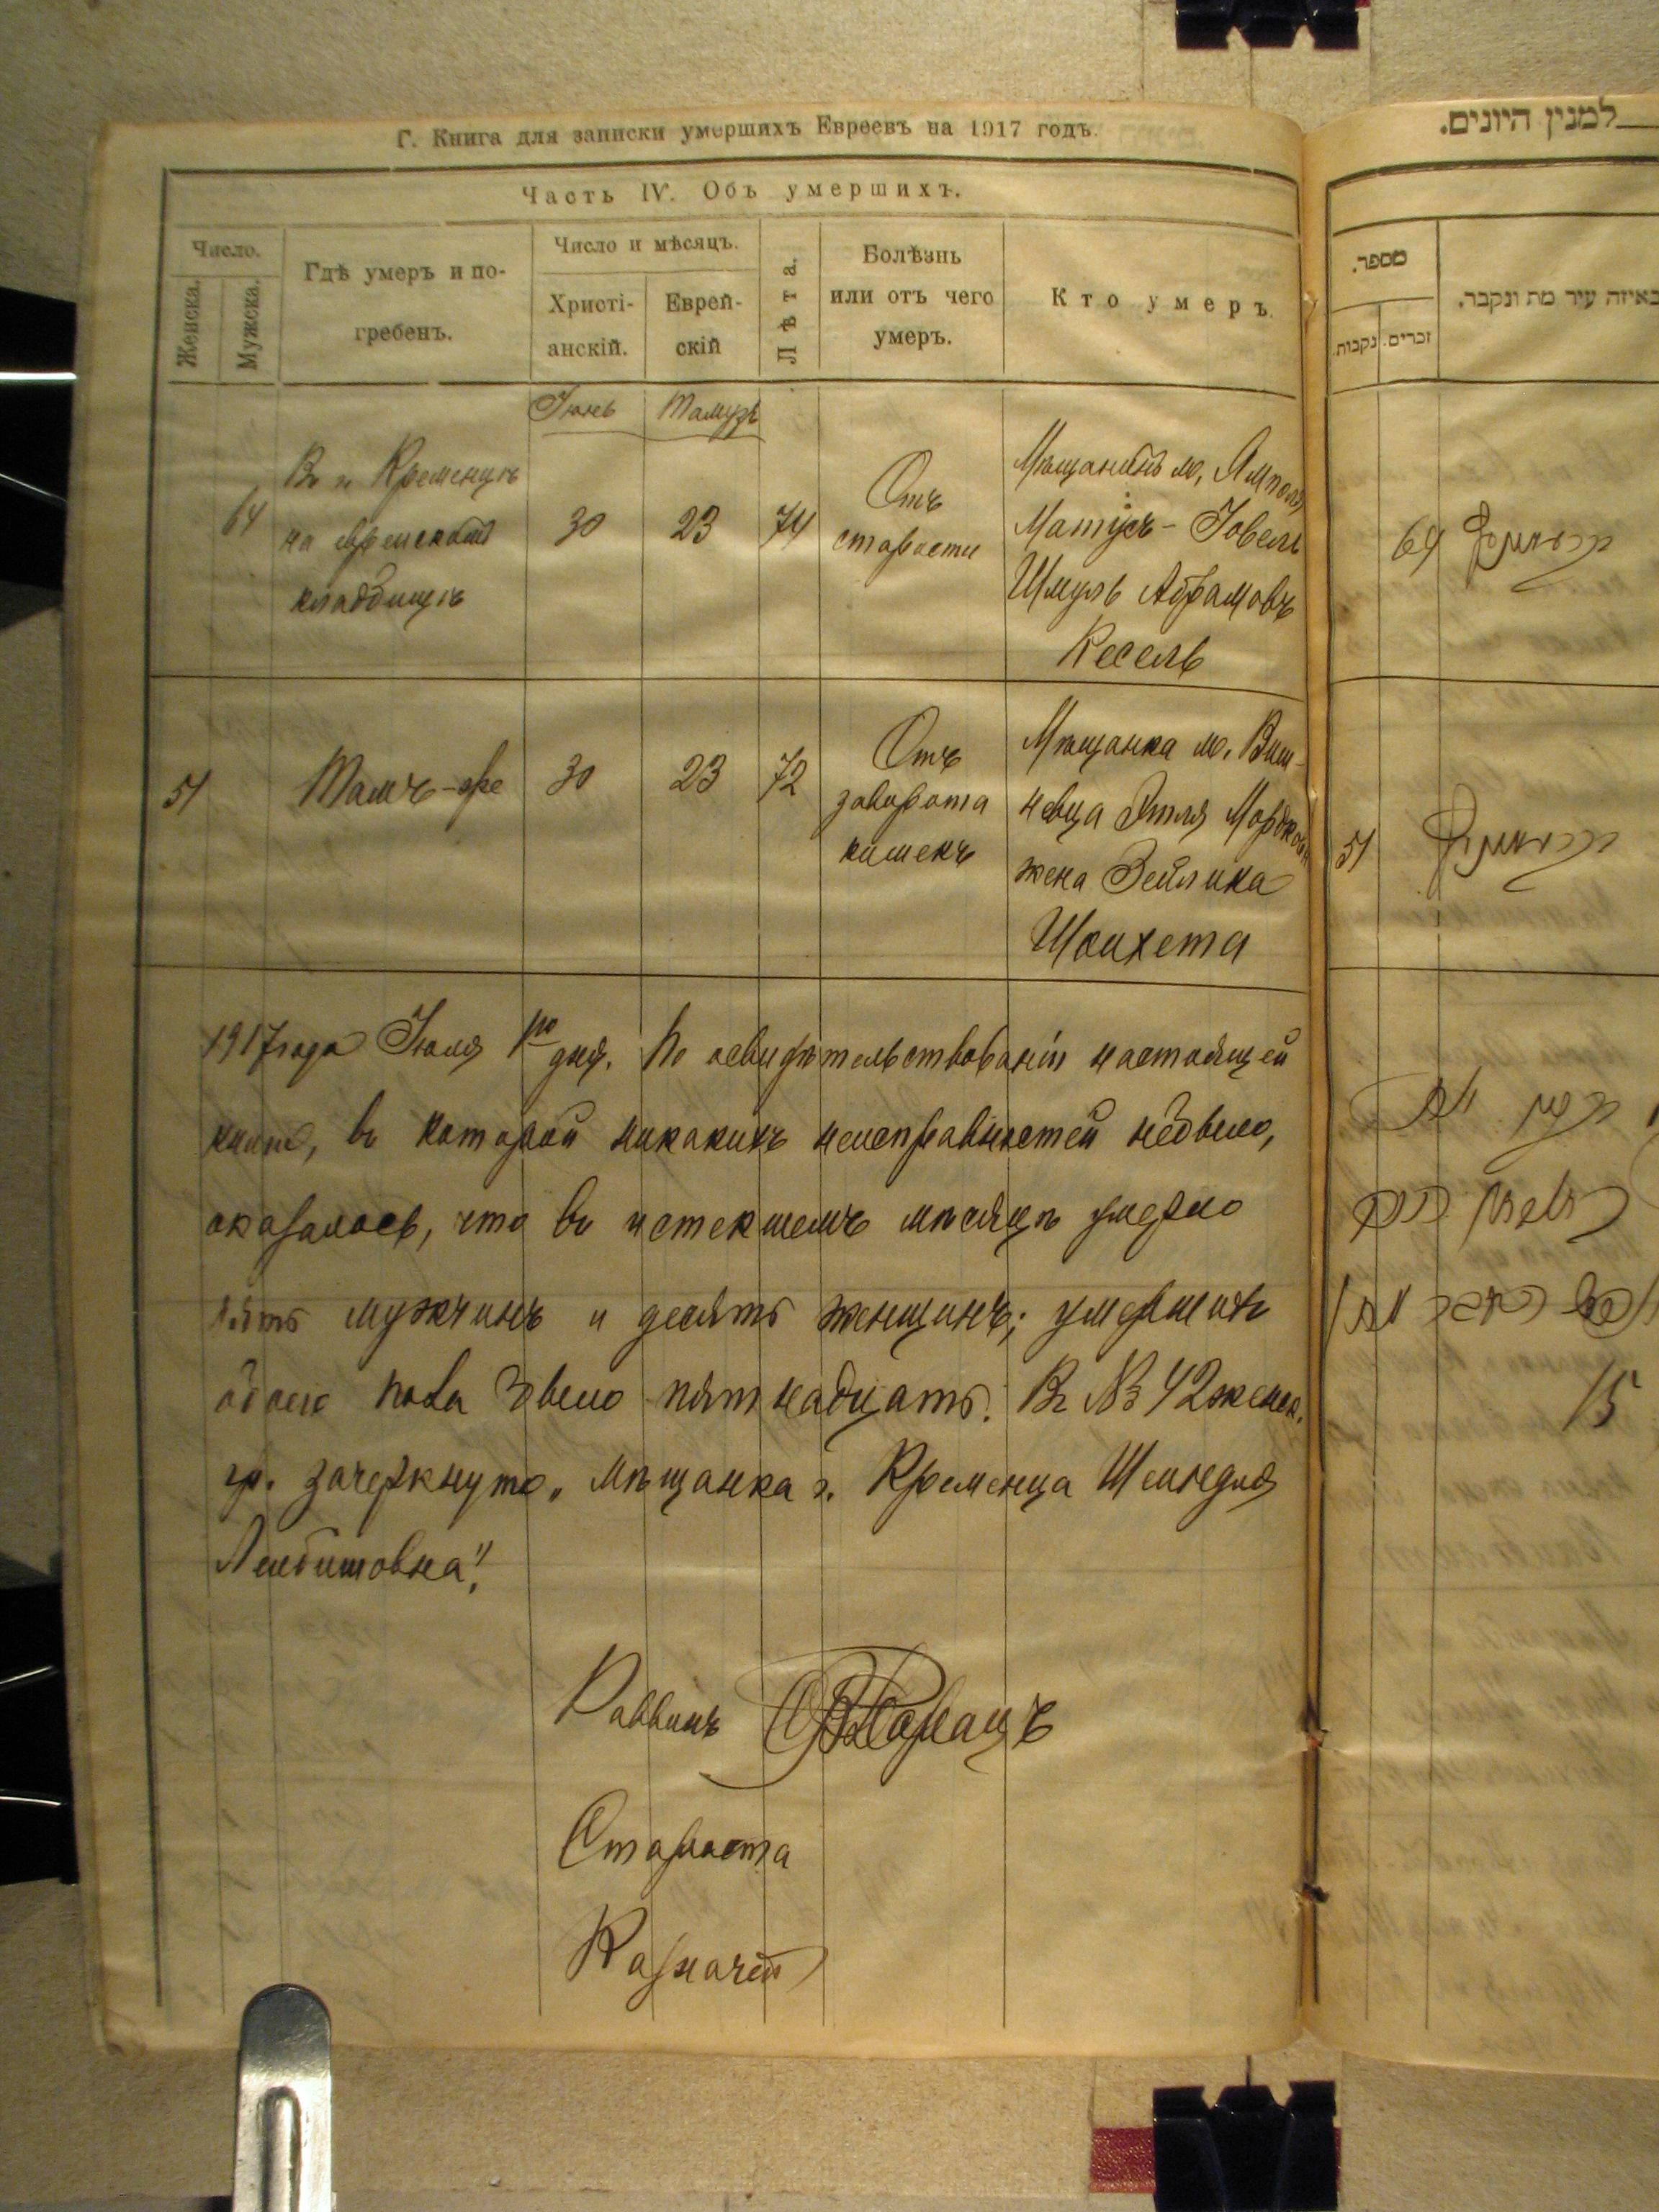 Г. Книга для записки умершихъ Евреевъ на 1917 годъ.
Часть IV. Объ умершихъ.
Число.
Женска.
Мужска.
Гдѣ умеръ и по-
гребенъ.
Число и мѣсяцъ.
Христі-
анскій.
Еврей-
скій
Лѣта.
Болѣзнь
или отъ чего
умеръ.
Кто умеръ.
Іюнь
Тамузъ
64
Въ г. Кременцѣ
на еврейскомъ
кладбищѣ
30
23
74
Отъ
старости
Мѣщанинъ м. Ямполя
Матусъ-Іовель
Шмуль Абрамовъ
Кесель
51
Тамъ-же
30
23
72
Отъ
заворота
кишекъ
Мѣщанка м. Виш-
невца Этля Мордков
жена Зейлика
Шойхета
1917 года Іюля 1го дня. По освидѣтельствованіи настоящей
книги, въ которой никакихъ неисправностей не было,
оказалось, что въ истекшемъ мѣсяцѣ умерло
пять мужчинъ и десять женщинъ; умершихъ
обоего пола было пятнадцать. Въ № 42 женск.
гр. зачеркнуто „мѣщанка г. Кременца Шейндля
Лейбишовна".
Раввинъ
Староста
Казначей
למנין היונים.
מספר.
נקבות.
זכרים.
באיזה עיר מת ונקבר.
64
קרעמניץ
51
קרעמניץ
15